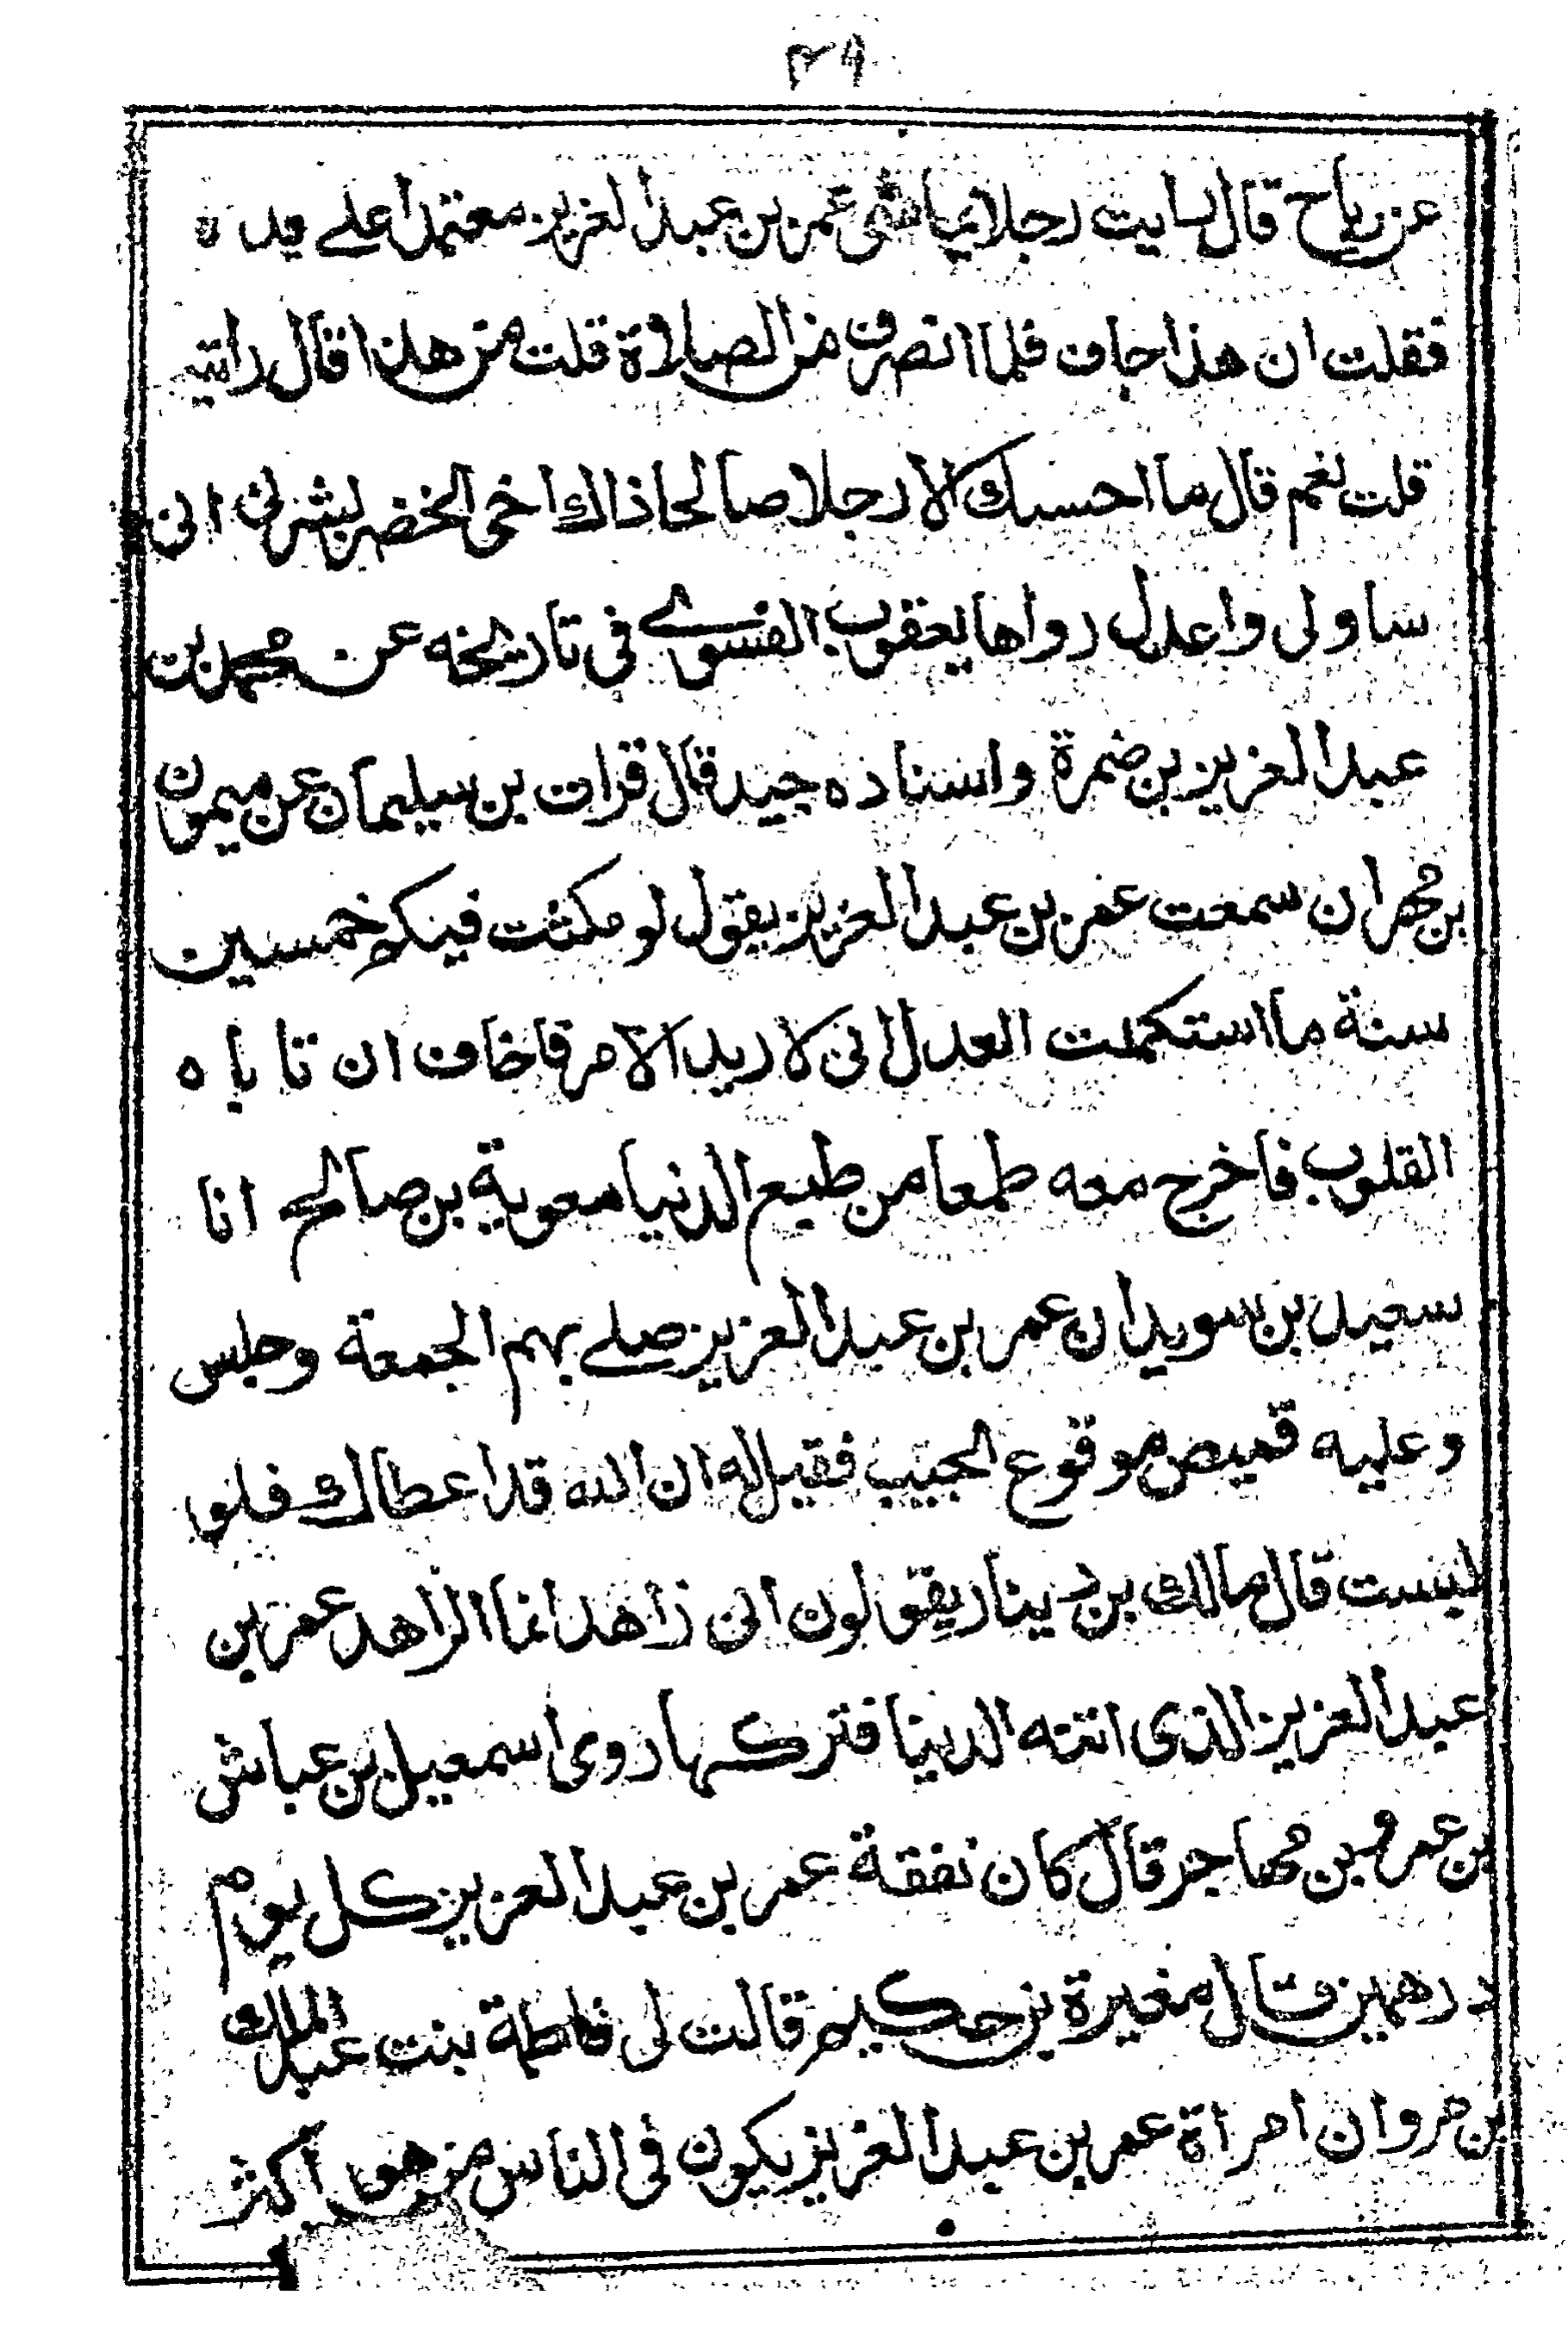 ٢٩
عن رياح قال رايت رجلا يماشى عمر بن عبد العزيز معتمدا على يده
فقلت ان هذا جاف فلما انصرف من الصلاة قلت من هذا قال رايته
قلت نعم قال ما احسبك الا رجلا صالحا ذاك اخى الخضر بشرنى انى
ساولى واعدل رواها يعقوب الفسوى فى تاريخه عن محمد بن
عبد العزيز بن ضمرة واسناده جيد قال قرات بن سليمان عن ميمون
بن مهران سمعت عمر بن عبد العزيز يقول لو مكثت فيكم خمسين
سنة ما استكملت العدل انى لاريد الامر فاخاف ان تاباه
القلوب فاخرج معه طمعا من طمع الدنيا معوية بن صالح انا
سعيد بن سويد ان عمر بن عبد العزيز صلى بهم الجمعة وجلس
وعليه قميص موقوع الجيب فقيل له ان الله قد اعطاك فلو
لبست قال مالك بن دينار يقولون انى زاهد انما الزاهد عمر بن
عبد العزيز الذى اتته الدنيا فتركها روى اسمعيل بن عباش
بن عمرو بن مهاجر قال كان نفقة عمر بن عبد العزيز كل يوم
درهمين قال مغيرة بن حكيم قالت لى فاطمة بنت عبد الملك
بن مروان امراة عمر بن عبد العزيز يكون فى الناس من هو اكثر